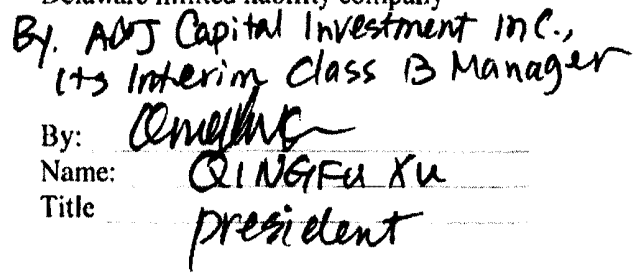 Delaware limited liability company
By. A&J Capital Investment Inc.,
its Interim Class B Manager
By:
Name: QINGFU XU
Title president